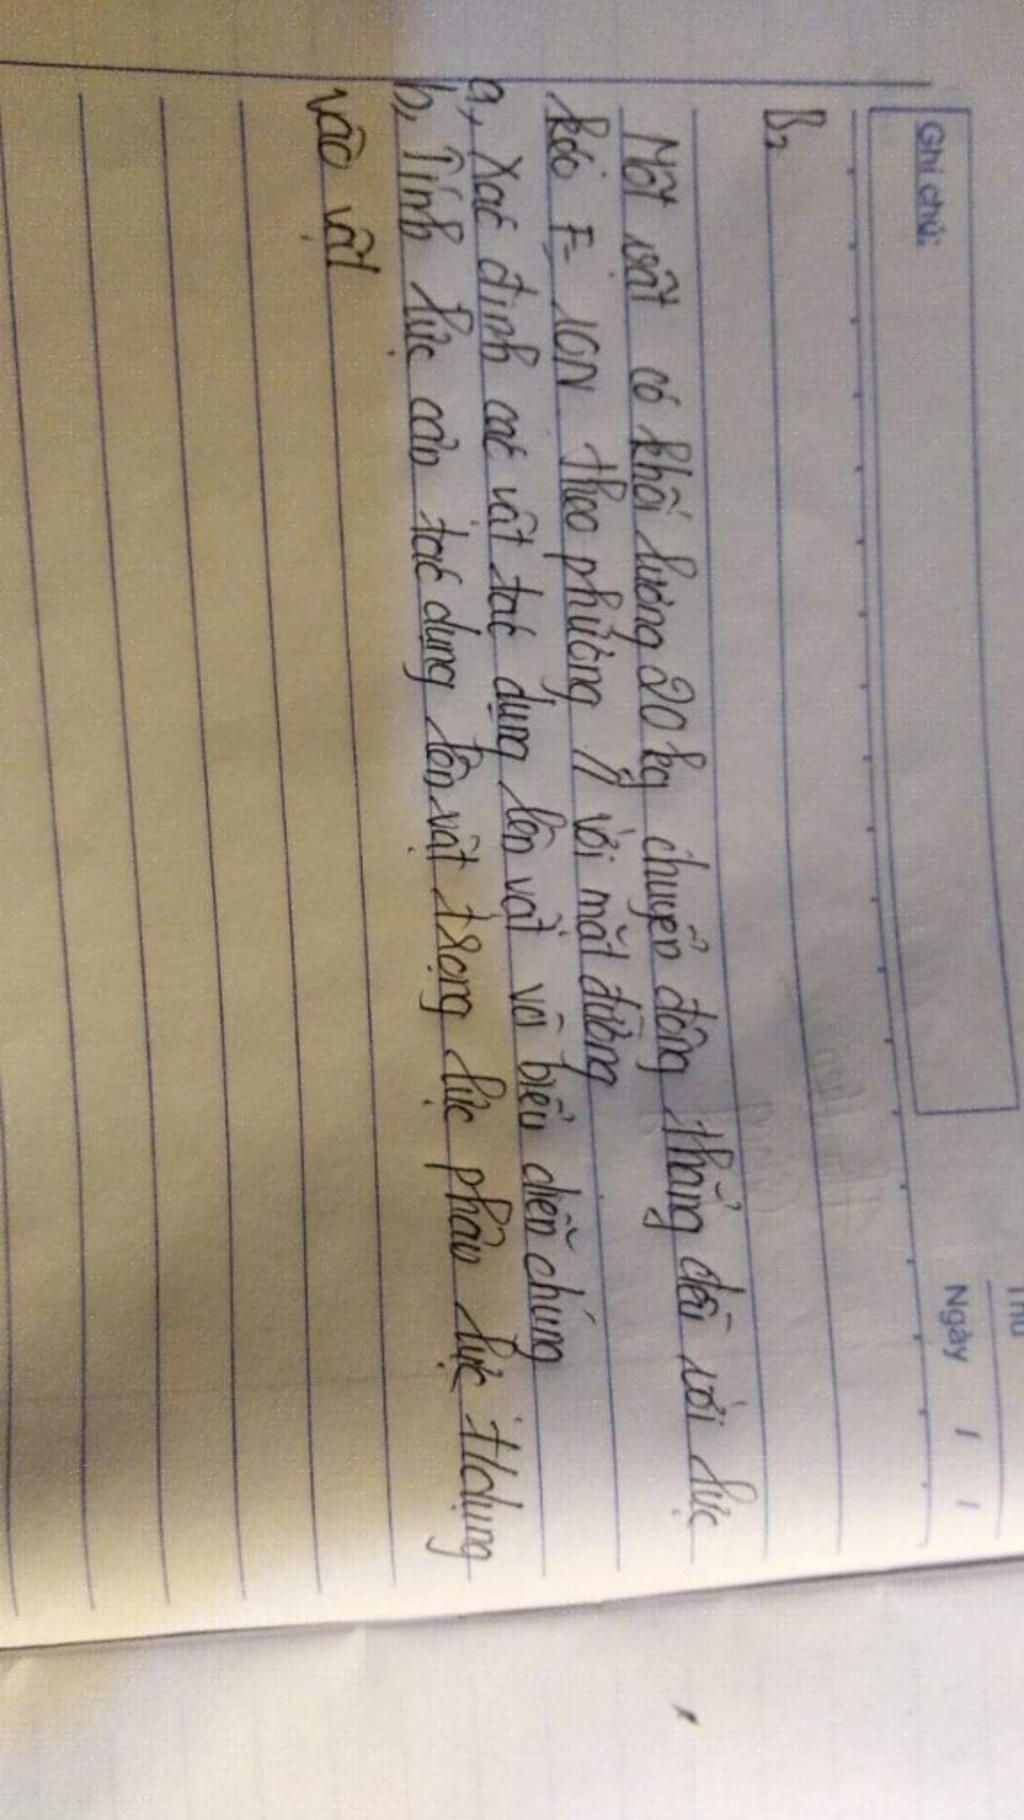 Ghi chú:
Ngày / /
B₂
Một vật có khối lượng 20 kg chuyển động thẳng đều với lực
kéo F = 10N theo phương // với mặt đường
a, Xác định các vật tác dụng lên vật và biểu diễn chúng
b, Tính lực cản tác dụng lên vật trọng lực phản lực t/dụng
vào vật